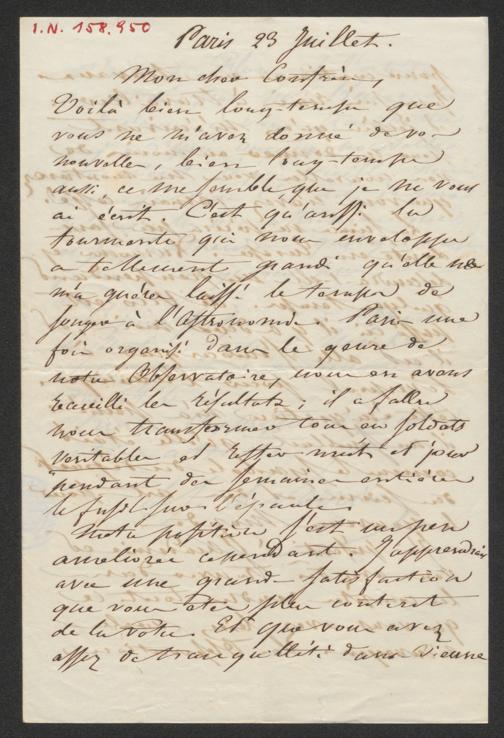 I.N. 158.950
Paris 23 Juillet.
Mon cher Confrère,
Voilà bien long-temps que
vous ne m'avez donné de vos
nouvelles, bien long-temps
aussi, ce me semble que je ne vous
ai écrit. C'est qu'aussi la
tourmente qui nous enveloppe
a tellement grandi qu'elle ne
m'a guères laissé le temps de
songer à l'Astronomie. Paris une
fois organisé dans le genre de
notre Observatoire, nous en avons
recueilli les résultats; il a fallu
nous transformer tous en soldats
veritables et rester nuit et jour
pendant des semaines entières
le fusil sur l'épaule.
Ma position s'est un peu
améliorée cependant. J'apprendrais
avec une grande satisfaction
que vous êtes plus content
de la votre. Et que vous avez
assez de tranquillité dans Vienne